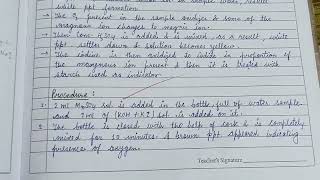 white ppt formation.
→ The O₂ present in the sample oxidize & some of the
manganous ion changes to magnic ion.
→ Then conc. H₂SO₄ is added & is mixed as a result, white
ppt settles down & solution becomes yellow.
→ The iodine is then oxidized is iodide in proportion of
the manganous ion present & then it is treated with
starch used as indicator.
Procedure :
1. 2 ml MnSO₄ sol. is added in the bottle full of water sample
and 2 ml of (KOH + KI) sol. is added on it.
2. The bottle is closed with the help of cork & is completely
mixed for 10 minutes. A brown ppt appeared indicating
presence of oxygen.
Teacher's Signature